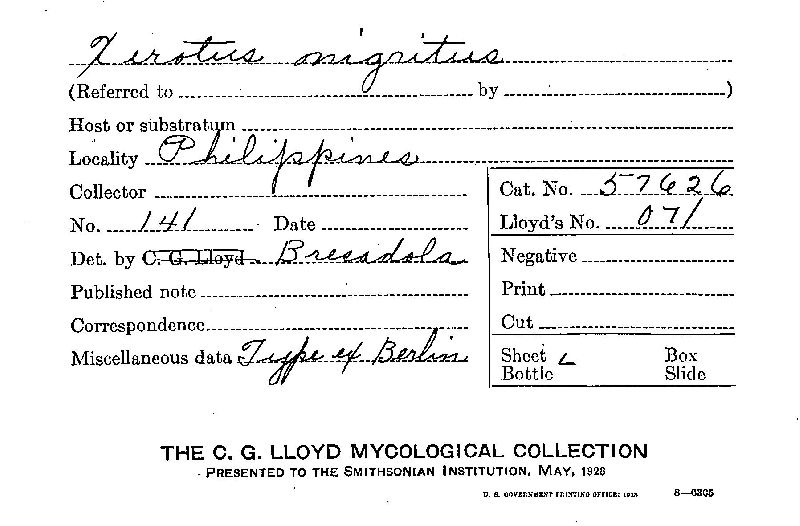 Xerotus nigritus
(Referred to by )
Host or substratum
Locality Philippines
Collector
Cat. No. 57626
No. 141 Date
Lloyd's No. 071
Det. by C. G. Lloyd Bresadola
Negative
Published note
Print
Correspondence
Cut
Miscellaneous data Type ex Berlin
Sheet Box
Bottle Slide
THE C. G. LLOYD MYCOLOGICAL COLLECTION
PRESENTED TO THE SMITHSONIAN INSTITUTION, MAY, 1928
U. S. GOVERNMENT PRINTING OFFICE:
8—6305